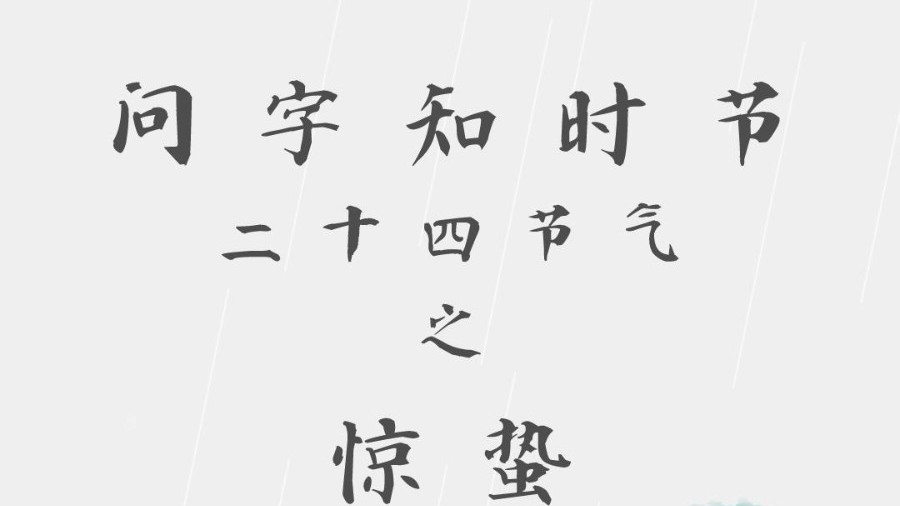 问字知时节
二十四节气
之
惊蛰